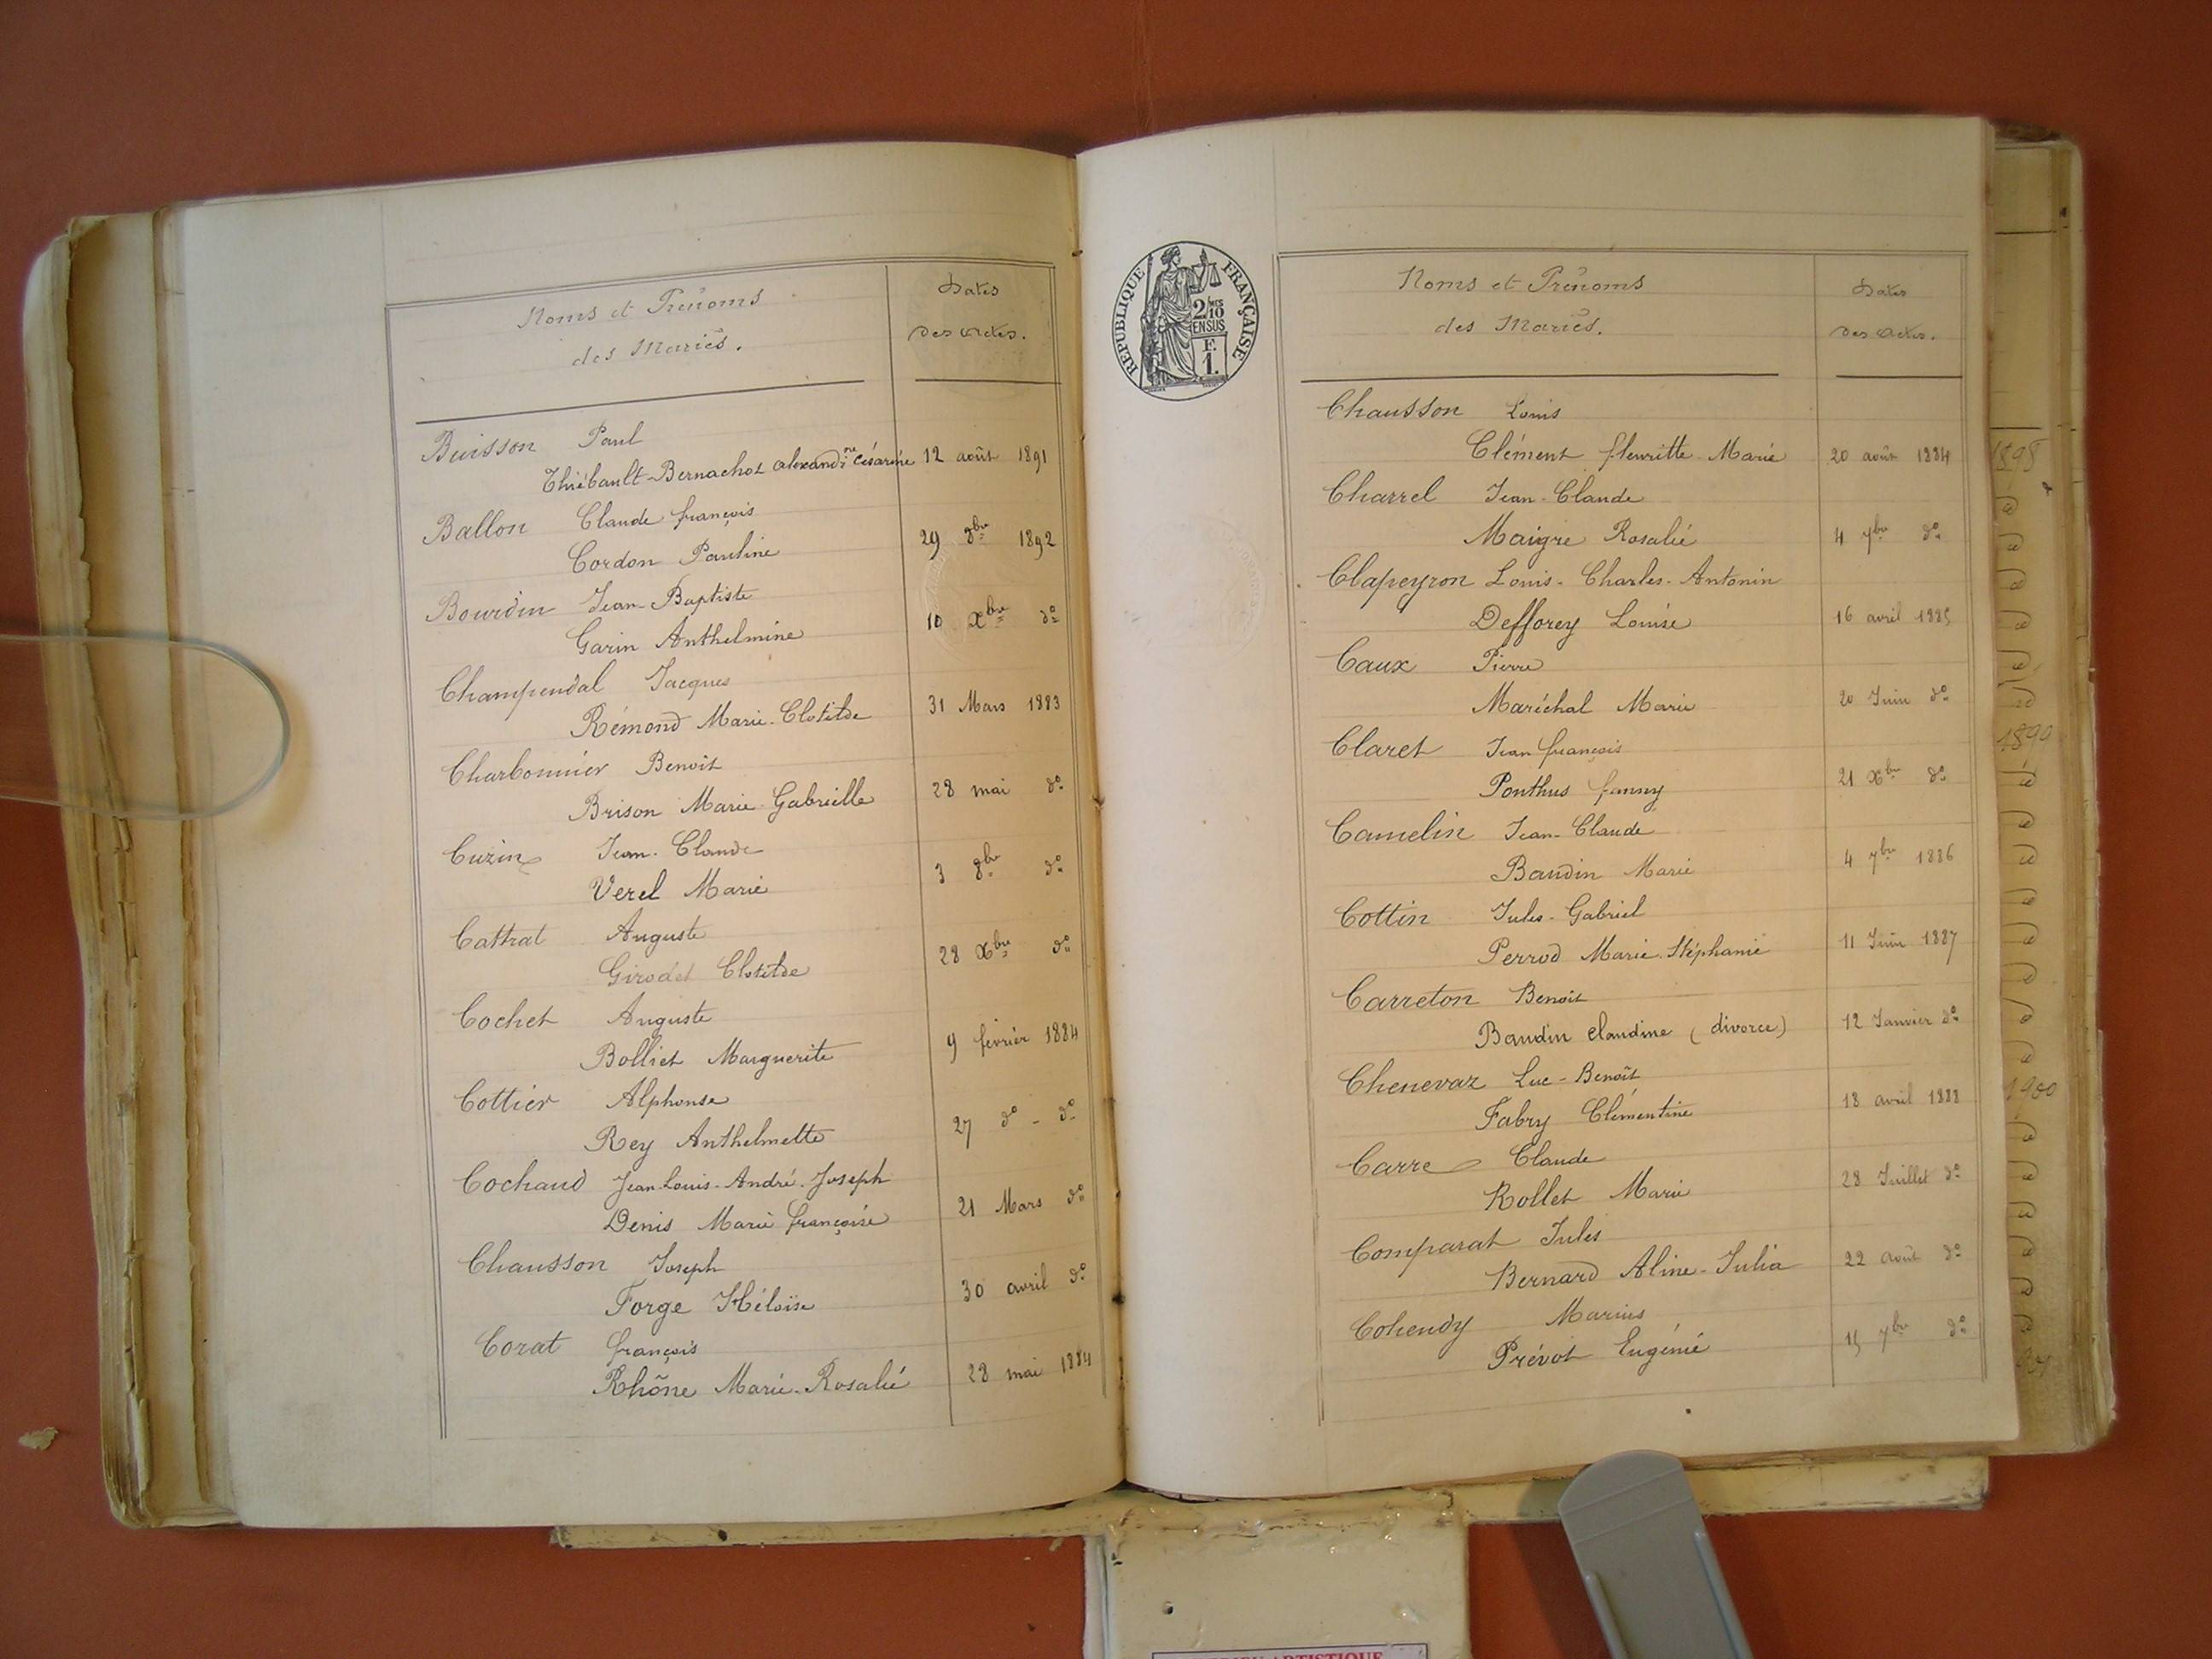 Noms et Prénoms
des Mariés.
Dates
des Actes.
Buisson Paul
Thiébault-Bernachot Alexandrine Césarine 12 août 1891
Ballon Claude François
Cordon Pauline 29 8bre 1892
Bourdin Jean-Baptiste
Garin Anthelmine 10 Xbre do
Champendal Jacques
Rémond Marie-Clotilde 31 Mars 1883
Charbonnier Benoit
Brison Marie-Gabrielle 28 mai do
Cuzin Jean-Claude
Verel Marie 3 8bre do
Cattrat Auguste
Girodet Clotilde 28 Xbre do
Cochet Auguste
Bolliet Marguerite 9 février 1884
Cottier Alphonse
Rey Anthelmette 27 do - do
Cochaud Jean-Louis-André-Joseph
Denis Marie Françoise 21 Mars do
Chausson Joseph
Forge Héloïse 30 avril do
Corat François
Rhône Marie-Rosalie 28 mai 1884
RÉPUBLIQUE FRANÇAISE
2/10
EN SUS
F.
1.
Noms et Prénoms
des Mariés.
Dates
des Actes.
Chausson Louis
Clément Fleuritte Marie 20 août 1884
Charrel Jean-Claude
Maigre Rosalie 4 7bre do
Clapeyron Louis-Charles-Antonin
Defforey Louise 16 avril 1885
Caux Pierre
Maréchal Marie 20 Juin do
Claret Jean François
Ponthus Fanny 21 Xbre do
Camelin Jean-Claude
Baudin Marie 4 7bre 1886
Cottin Jules-Gabriel
Perrod Marie-Stéphanie 11 Juin 1887
Carreton Benoit
Baudin Claudine (divorce) 12 Janvier do
Chenevaz Luc-Benoît
Fabry Clémentine 18 avril 1888
Carre Claude
Rollet Marie 28 Juillet do
Comparat Jules
Bernard Aline-Julia 22 août do
Cohendy Marius
Prévot Eugénie 15 7bre do
1898
1890
1900